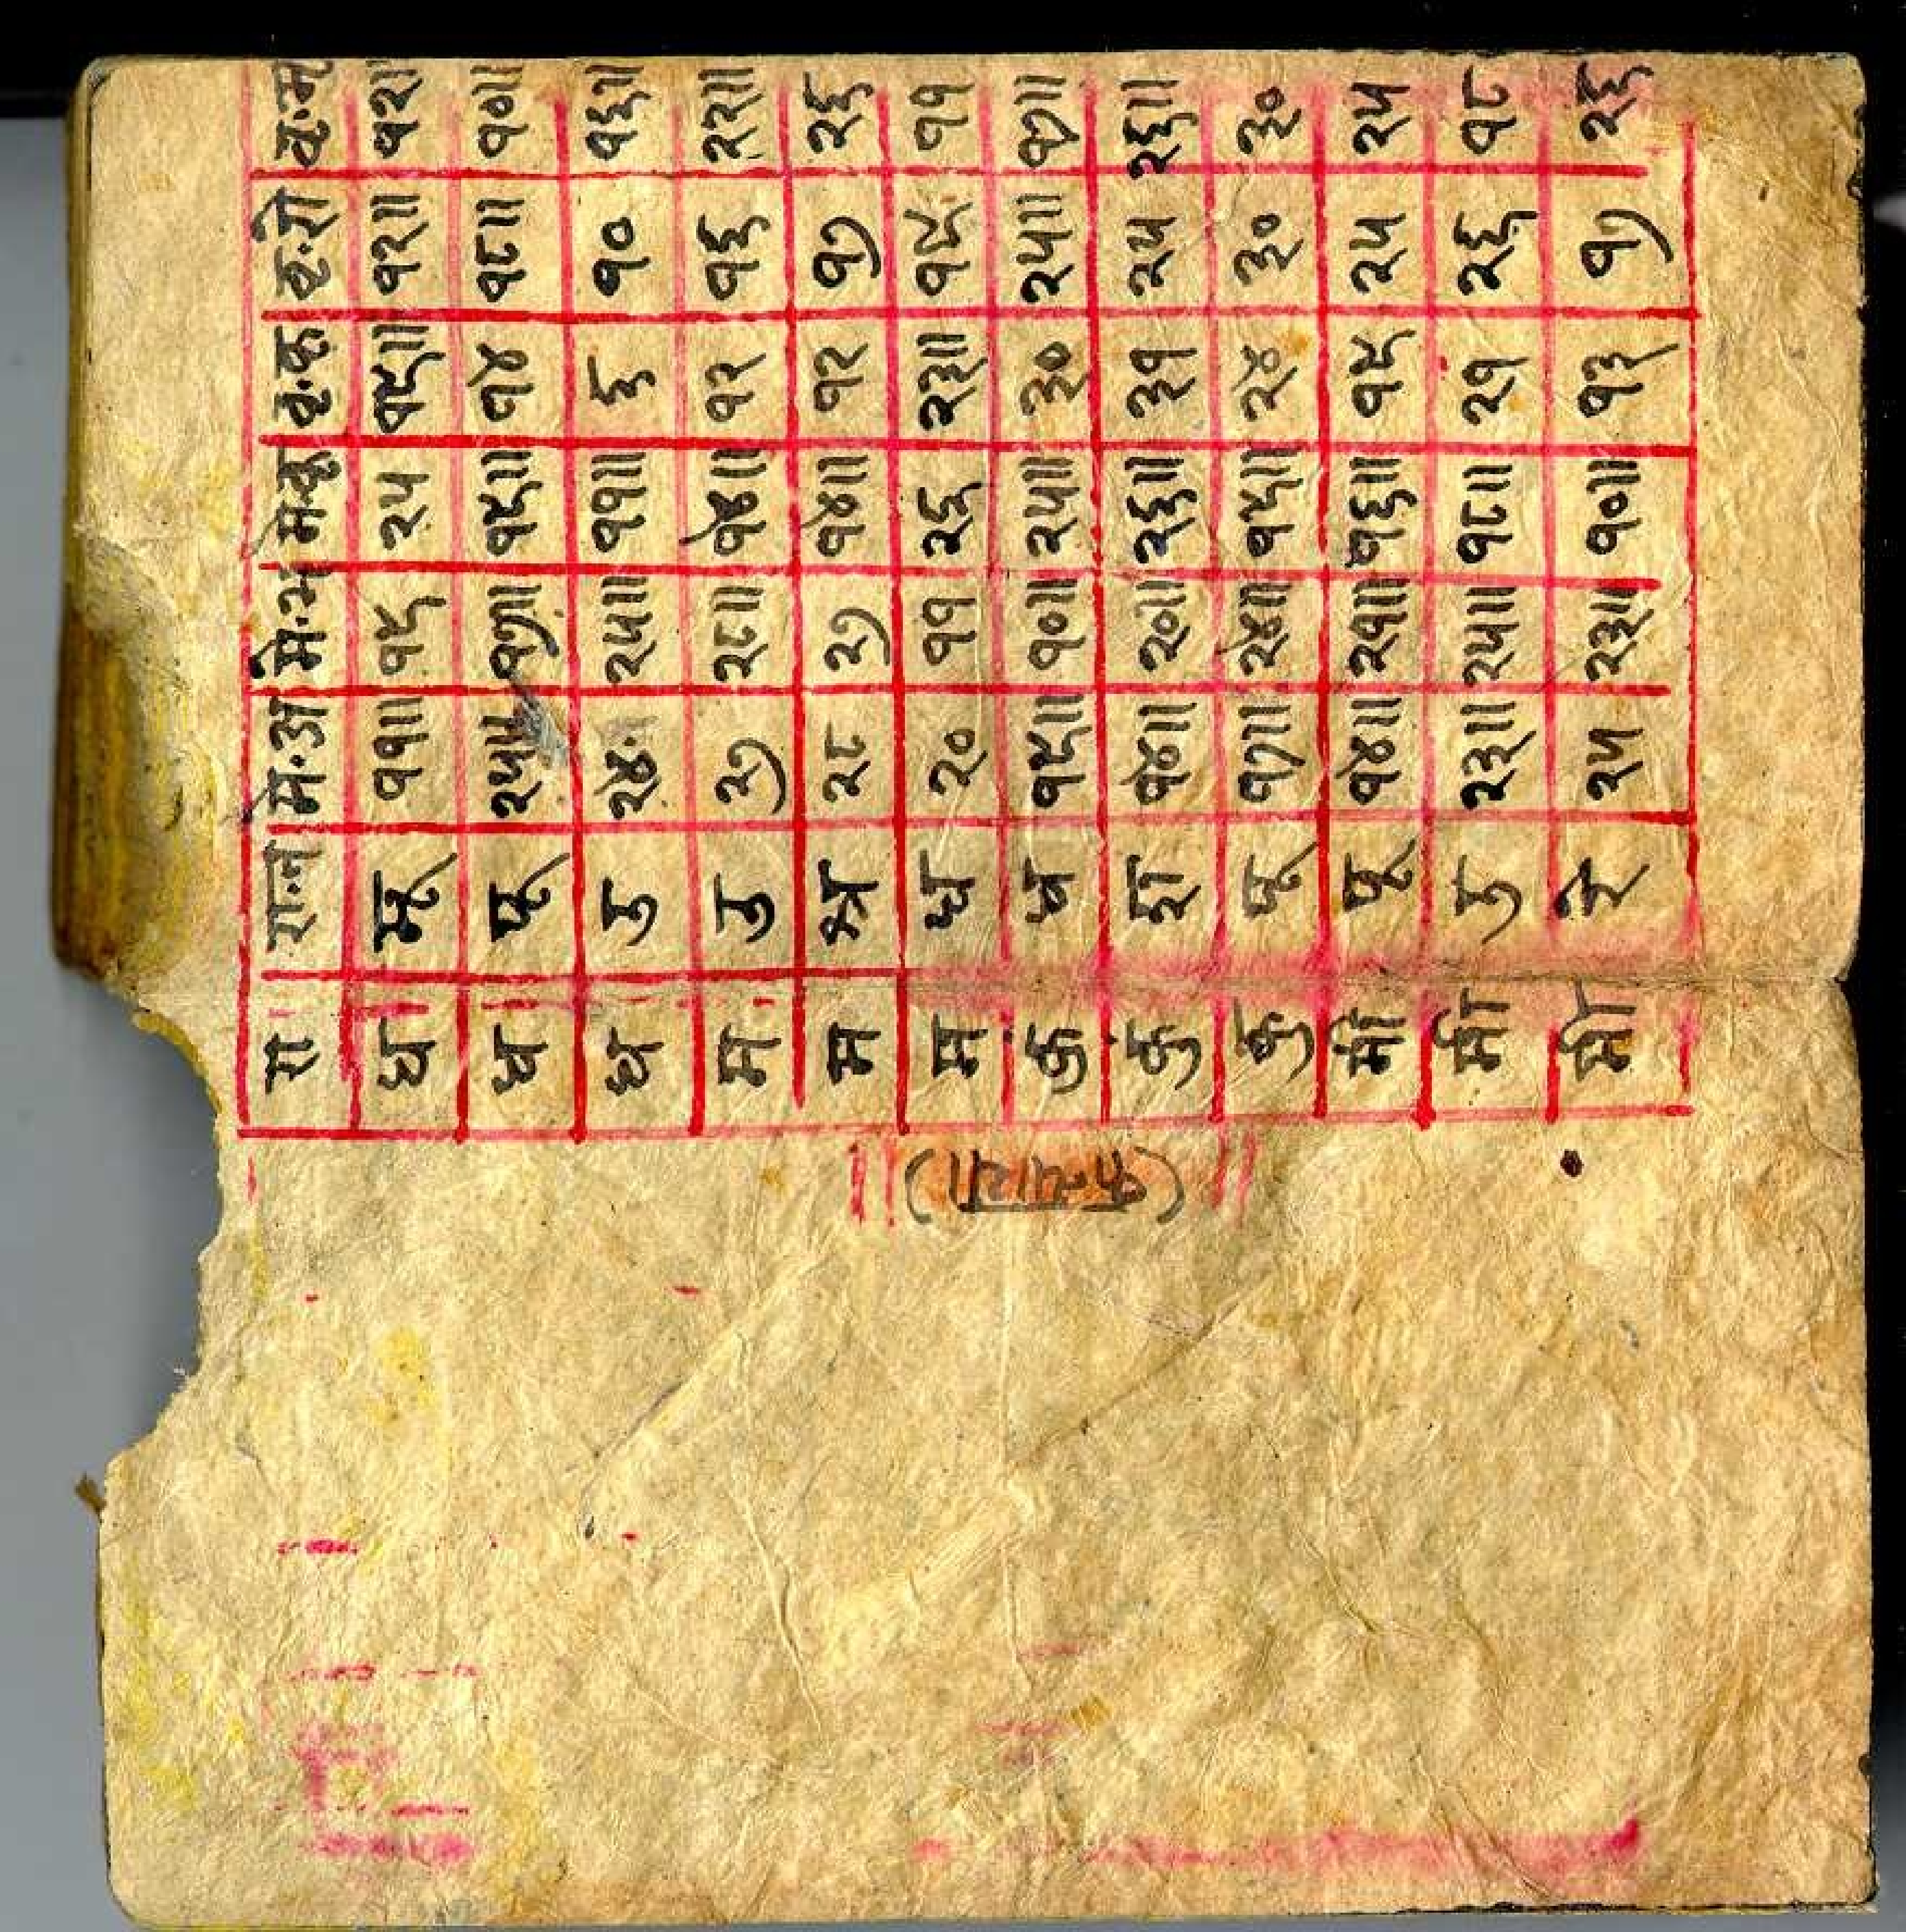 रा रा·न मे·अ मे·भ मे·कृ वृ·कृ वृ·रो वृ·मृ
ध मू ११॥ १९ २५ १९॥ १२॥ १२॥
ध पू २५॥ १७॥ १९॥ १४ १८॥ १०॥
ध उ २४॥ २५॥ ११॥ ६ १० १६॥
म उ २७ २८॥ १४॥ १२ १६ २२॥
म श्र २८ २७ १४॥ १२ १७ २६
म ध २० ११ २६ २३॥ १९ ११
कुं ध १९॥ १०॥ २५॥ ३० २५॥ १७॥
कुं श १४॥ २०॥ २६॥ ३१ २५ २६॥
कुं पू १७॥ २४॥ १९॥ २४ ३० ३०
मी पू १४॥ २१॥ १६॥ १९ २५ २५
मी उ २३॥ २५॥ १८॥ २१ २६ १८
मी रे २५ २३॥ १०॥ १३ १७ २६